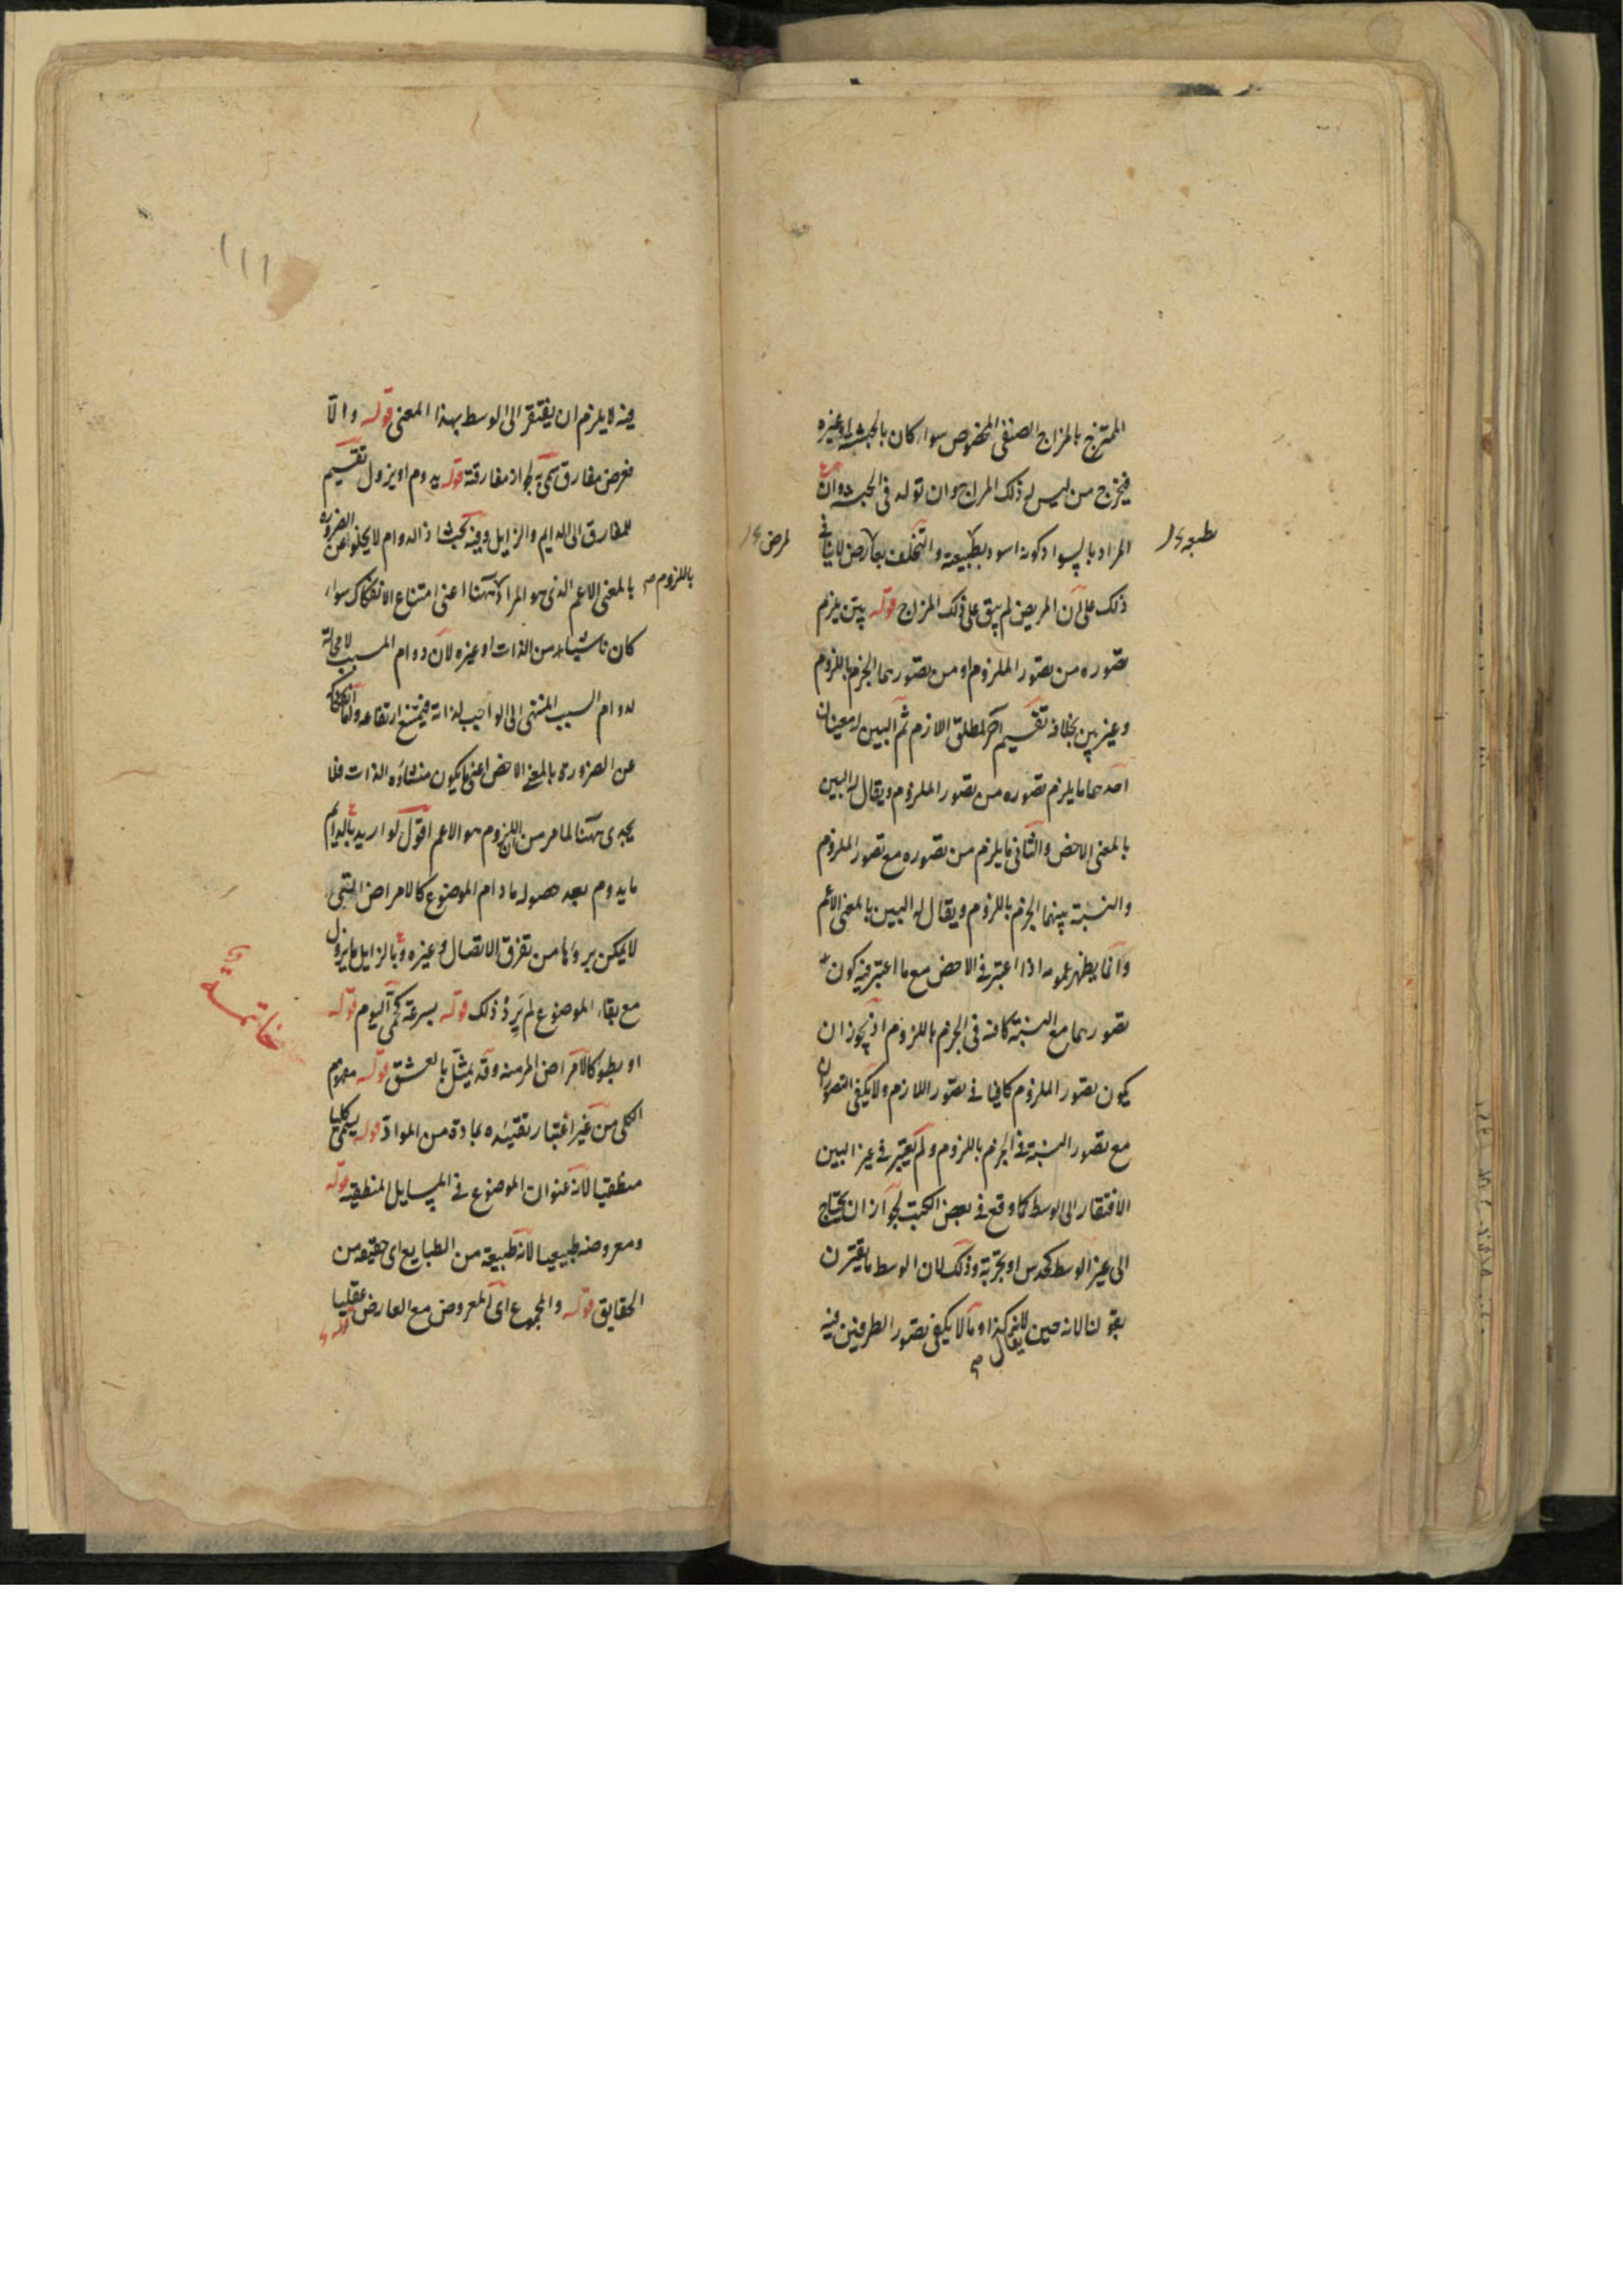 الممتزج بالمزاج الصنفی المخصوص سواء كان بالحبشة او غيره
فيخرج من ليس له ذلك المزاج وان تولد فی الحبشة وان
المراد بالسواد كونه اسود بطبيعته والتخلف بعارض لا ينافی
لمرض
ذلك على ان المريض لم يبق على ذلك المزاج قوله بين يلزم
تصوره من تصور الملزوم او من تصورهما الجزم باللزوم
وغير بين بخلافه تقسيم آخر لمطلق اللازم ثم البين له معنيان
احدهما ما يلزم تصوره من تصور الملزوم ويقال له البين
بالمعنى الاخص والثانی ما يلزم من تصوره مع تصور الملزوم
والنسبة بينهما الجزم باللزوم ويقال له البين بالمعنى الاعم
وانما يظهر عمومه اذا اعتبر فی الاخص مع ما اعتبر فيه كون
تصورهما مع النسبة كافيه فی الجزم باللزوم اذ يجوز ان
يكون تصور الملزوم كافيا فی تصور اللازم ولا يكفی التصوران
مع تصور النسبة فی الجزم باللزوم ولم يعتبر فی غير البين
الافتقار الى الوسط كما وقع فی بعض الكتب لجواز ان يحتاج
الى غير الوسط كحدس او تجربة وذلك لان الوسط ما يقترن
بقولنا لانه حين يقال لانه كذا وما لا يكفی تصور الطرفين فيه
١١١
فيه لا يلزم ان يفتقر الى الوسط بهذا المعنى قوله والا
فعرض مفارق سمی به لجواز مفارقته قوله يدوم او يزول تقسيم
للمفارق الى الدايم والزايل وفيه بحث اذ الدوام لا يخلو عن الضرورة
باللزوم
بالمعنى الاعم الذی هو المراد ههنا اعنی امتناع الانفكاك سواء
كان ناشيا من الذات او غيره لان دوام المسبب لا محالة
لدوام السبب المنتهى الى الواجب لذاته فيمتنع ارتفاعه واما انفكاكه
عن الضرورة بالمعنى الاخص اعنی ما يكون منشاؤه الذات فلا
يجدی ههنا لما مر من ان اللزوم هو الاعم اقول لو اريد بالدايم
ما يدوم بعد حصوله ما دام الموضوع كالامراض التی
لا يمكن برؤها من تفرق الاتصال وغيره وبالزايل ما يزول
مع بقاء الموضوع لم يرد ذلك قوله بسرعة كحمى اليوم قوله
او بطو كالامراض المزمنه وقد يمثل بالعشق قوله مفهوم
خاتمة
الكلی من غير اعتبار تقييده بمادة من المواد قوله يسمى كليا
منطقيا لانه عنوان الموضوع فی المسايل المنطقيه قوله
ومعروضه طبيعيا لانه طبيعة من الطبايع ای حقيقه من
الحقايق قوله والمجموع ای المعروض مع العارض عقليا
قوله